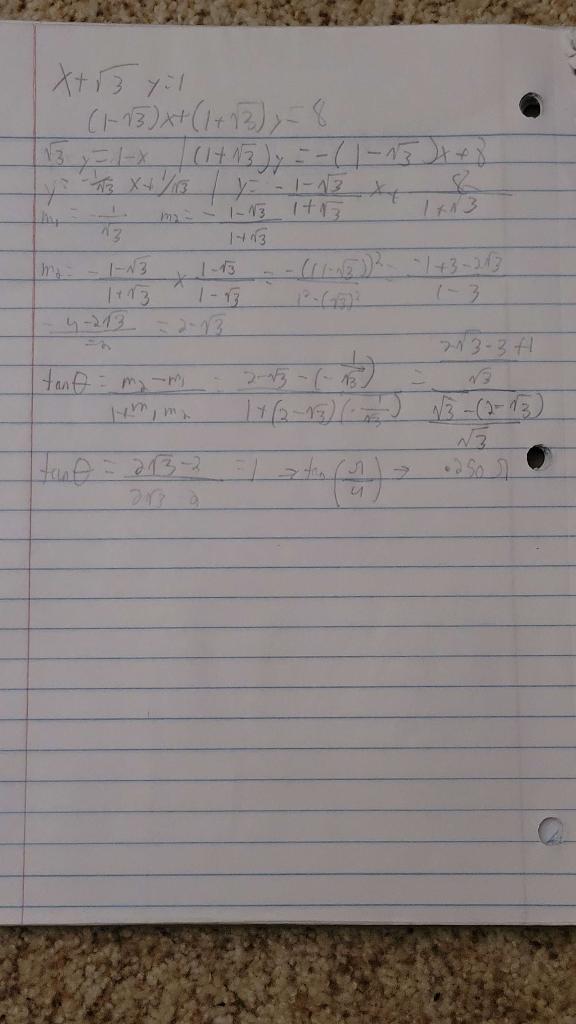 x+√3 y=1
(1-√3)x+(1+√3)y=8
√3 y=1-x | (1+√3)y=-(1-√3)x+8
y=-1/√3 x+1/√3 | y=-(1-√3)/(1+√3) x+ 8/(1+√3)
m₁=-1/√3 m₂=-(1-√3)/(1+√3)
m₂=-(1-√3)/(1+√3) × (1-√3)/(1-√3) = -((1-√3))²/(1²-(√3)²) = -1+3-2√3/(1-3)
-(4-2√3)/-2 = 2-√3
tanθ = (m₂-m₁)/(1+m₁m₂) = (2-√3-(-1/√3))/(1+(2-√3)(-1/√3)) = ((2√3-3+1)/√3)/((√3-(2-√3))/√3)
tanθ = (2√3-2)/(2√3-2) =1 → tan(π/4) → .250π